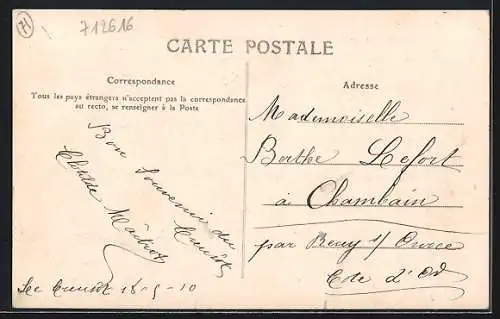 71
712616
CARTE POSTALE
Correspondance
Tous les pays étrangers n'acceptent pas la correspondance
au recto, se renseigner à la Poste
Adresse
Bon Souvenir du
Creusot
Clotilde
Le Creusot 18-5-10
Mademoiselle
Berthe Lefort
à Chambain
par Recey s/ Ource
Cote d'Or